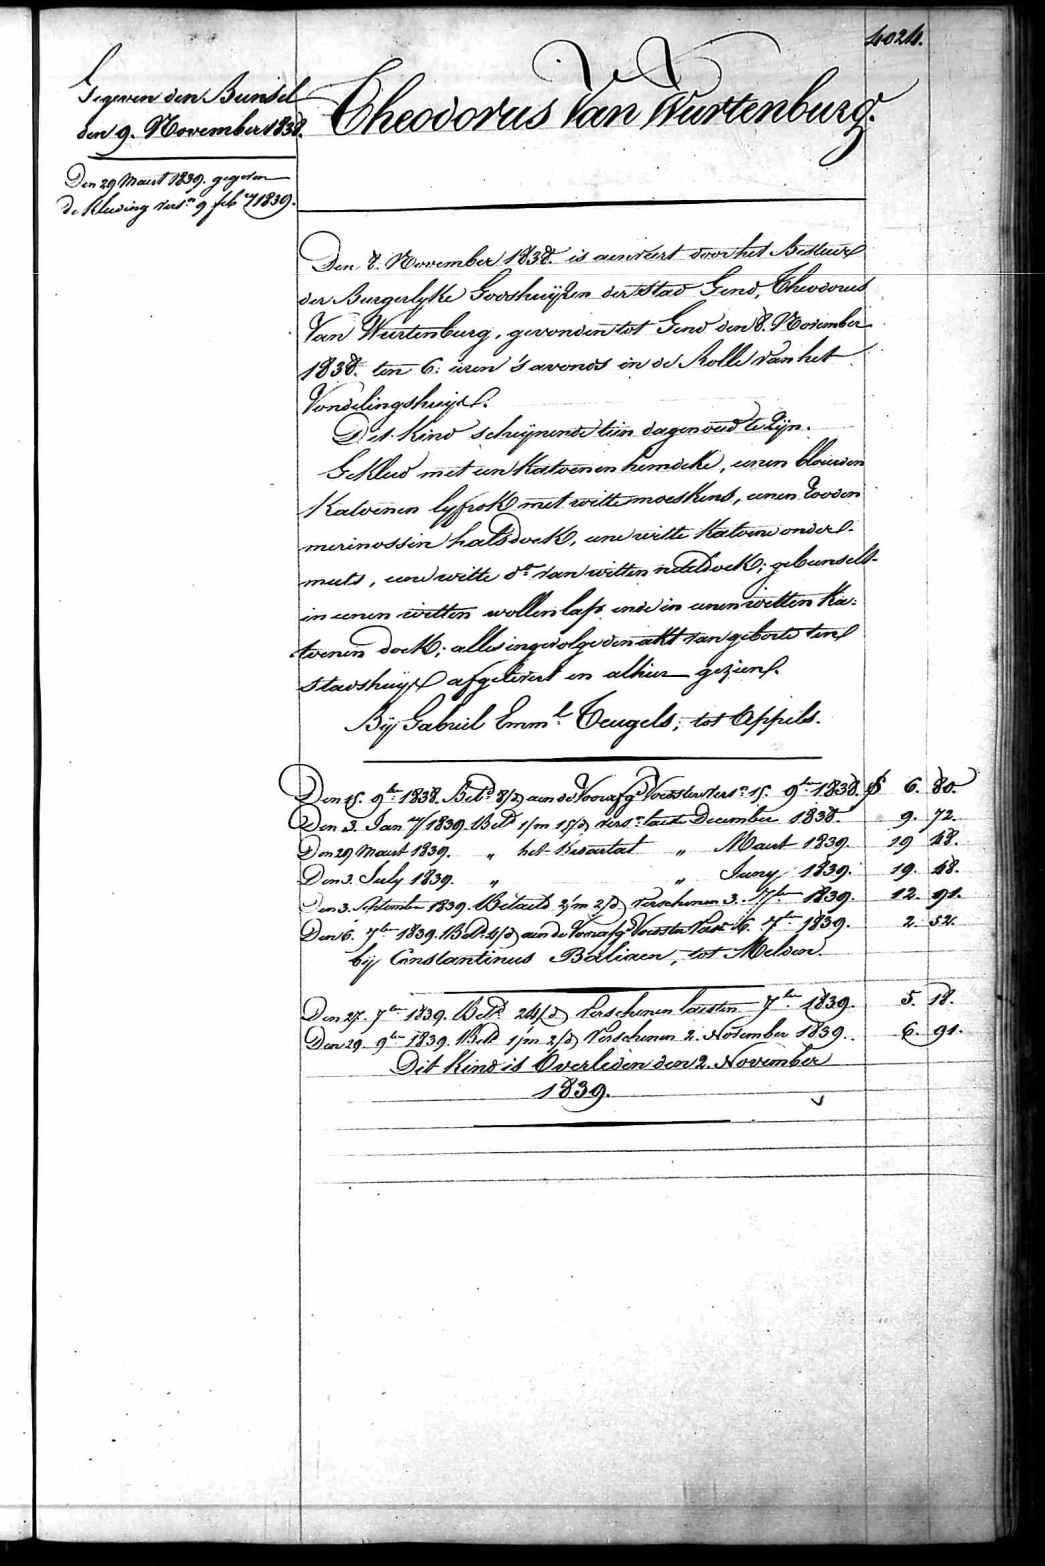 4024.
Gegeven den Bunsel
den 9. November 1838.
Den 29 Maert 1839. gegeven
de Kleeding vers.n 9 feb.ry 1839.
Theodorus Van Wurtenburg.
Den 8. November 1838. is aenveert door het Bestuur
der Burgerlyke Godshuijzen der stad Gend, Theodorus
Van Wurtenburg, gevonden tot Gend den 8. November
1838. ten 6. uren 's avonds in de Rolle van het
Vondelingshuijs.
Dit Kind schijnende tien dagen oud te Zijn.
Gekleed met een Katoenen hemdeke, eenen blauwen
Katoenen lyfrok met witte moeskens, eenen Rooden
merinossen halsdoek, eene witte Katoene onder-
muts, eene witte d.o van witten neteldoek; gebunselt
in eenen witten wollen lap ende in eenen witten Ka:
toenen doek; alles ingevolge den akt van geboorte ten
stadshuijse afgelevert en alhier gezien.
Bij Gabriel Emm.l Teugels, tot Appels.
Den 15. 9.re 1838. Bet.d 8/d aen de Voorafg.e Voedster vers.n 15. 9.re 1838. f 6. 80.
Den 3. Jan.ry 1839. Bet.d 1/m 15/d vers.n laeste December 1838. 9. 72.
Den 29 Maert 1839. „ het Kwartael „ Maert 1839. 19 48.
Den 3. July 1839. „ „ Juny 1839. 19. 48.
Den 3. September 1839. Betaeld 2/m 2/d verschenen 3. 7.bre 1839. 12. 91.
Den 6. 7.bre 1839. Bet.d 4/d aen de Voorafg.e Voedster Vers.n 16. 7.bre 1839. 2. 52.
bij Constantinus Baliaen, tot Melden.
Den 27. 7.bre 1839. Bet.d 24/d Verschenen laesten 7.bre 1839. 5. 18.
Den 29. 9.bre 1839. Bet.d 1/m 2/d Verschenen 2. November 1839. 6. 91.
Dit Kind is Overleden den 2. November
1839.